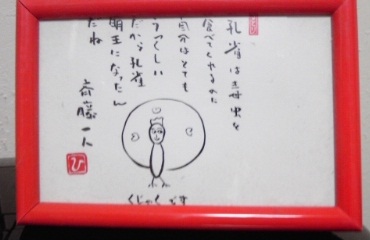 孔雀は毒虫を
食べてくれるのに
自分はとても
うつくしい
だから孔雀
明王になったん
だね
斎藤一人
ひ
くじゃくです